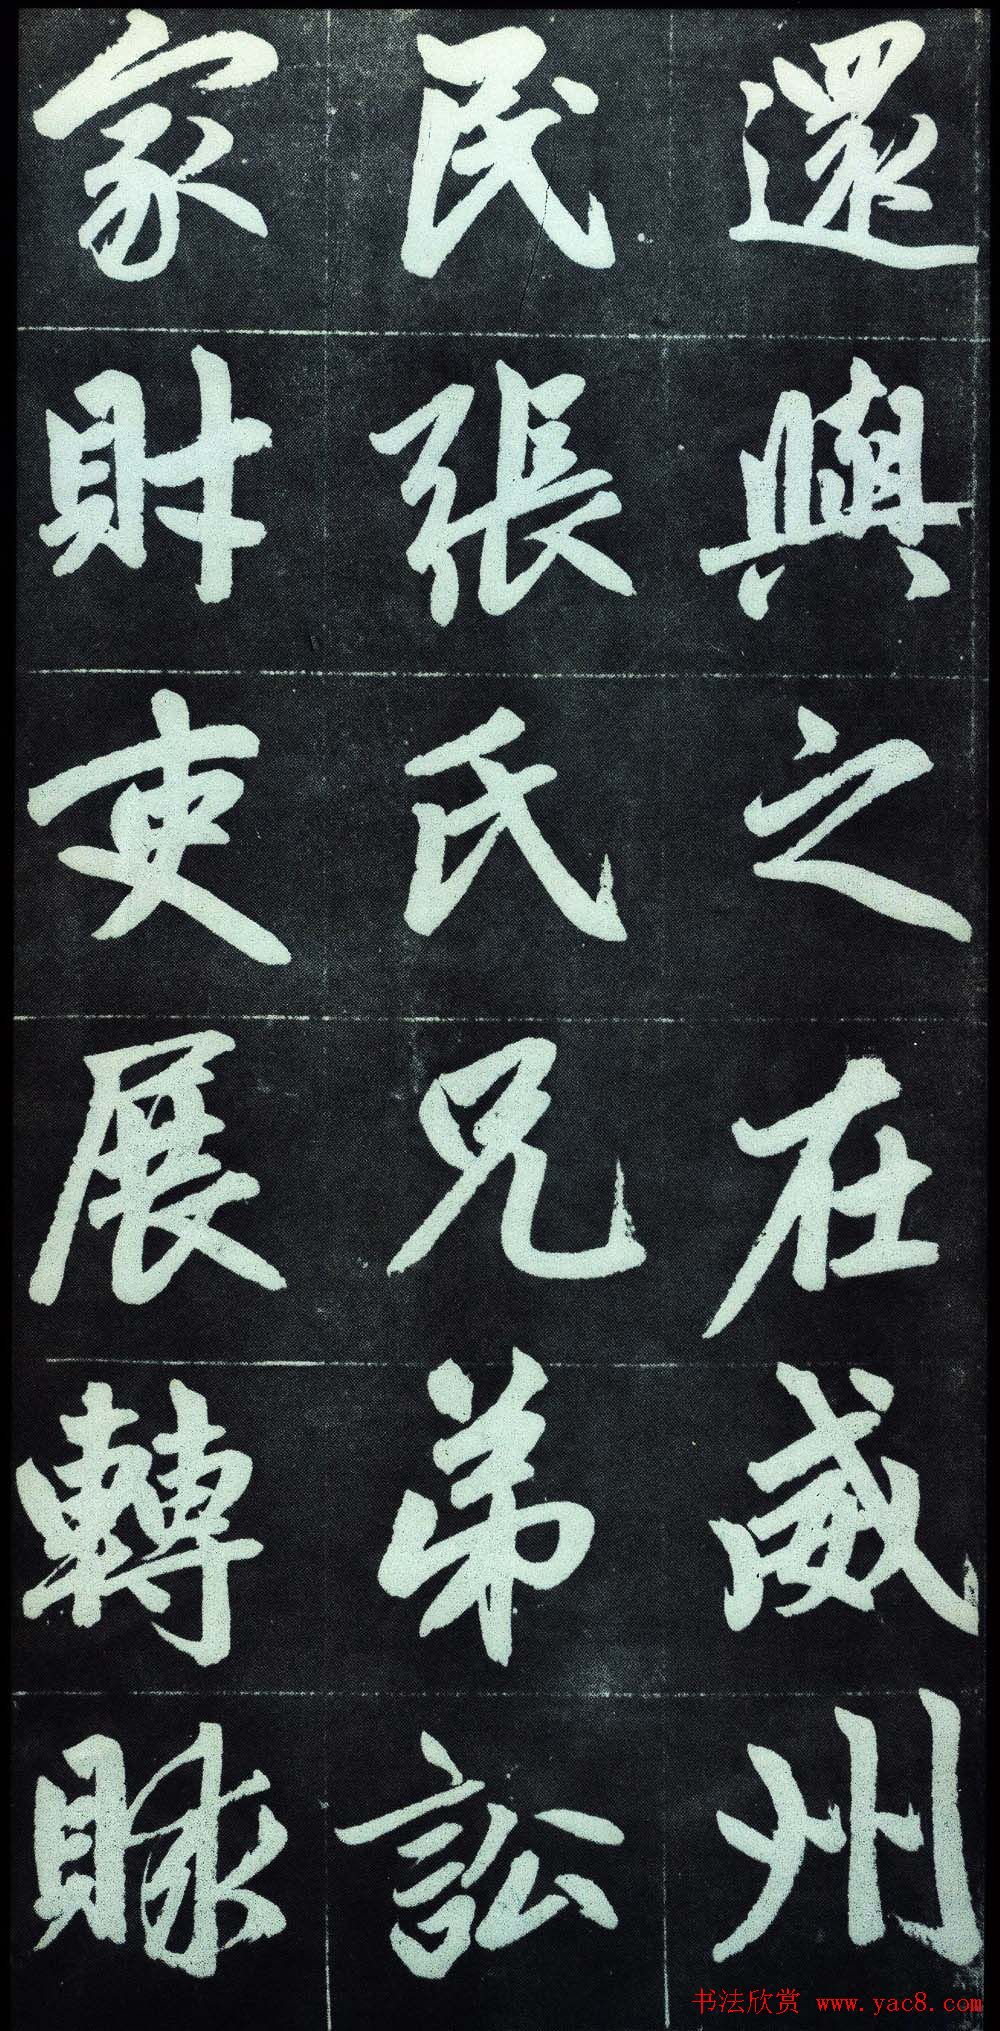 還與之在威州
民張氏兄弟訟
家財吏展轉賕
书法欣赏 www.yac8.com